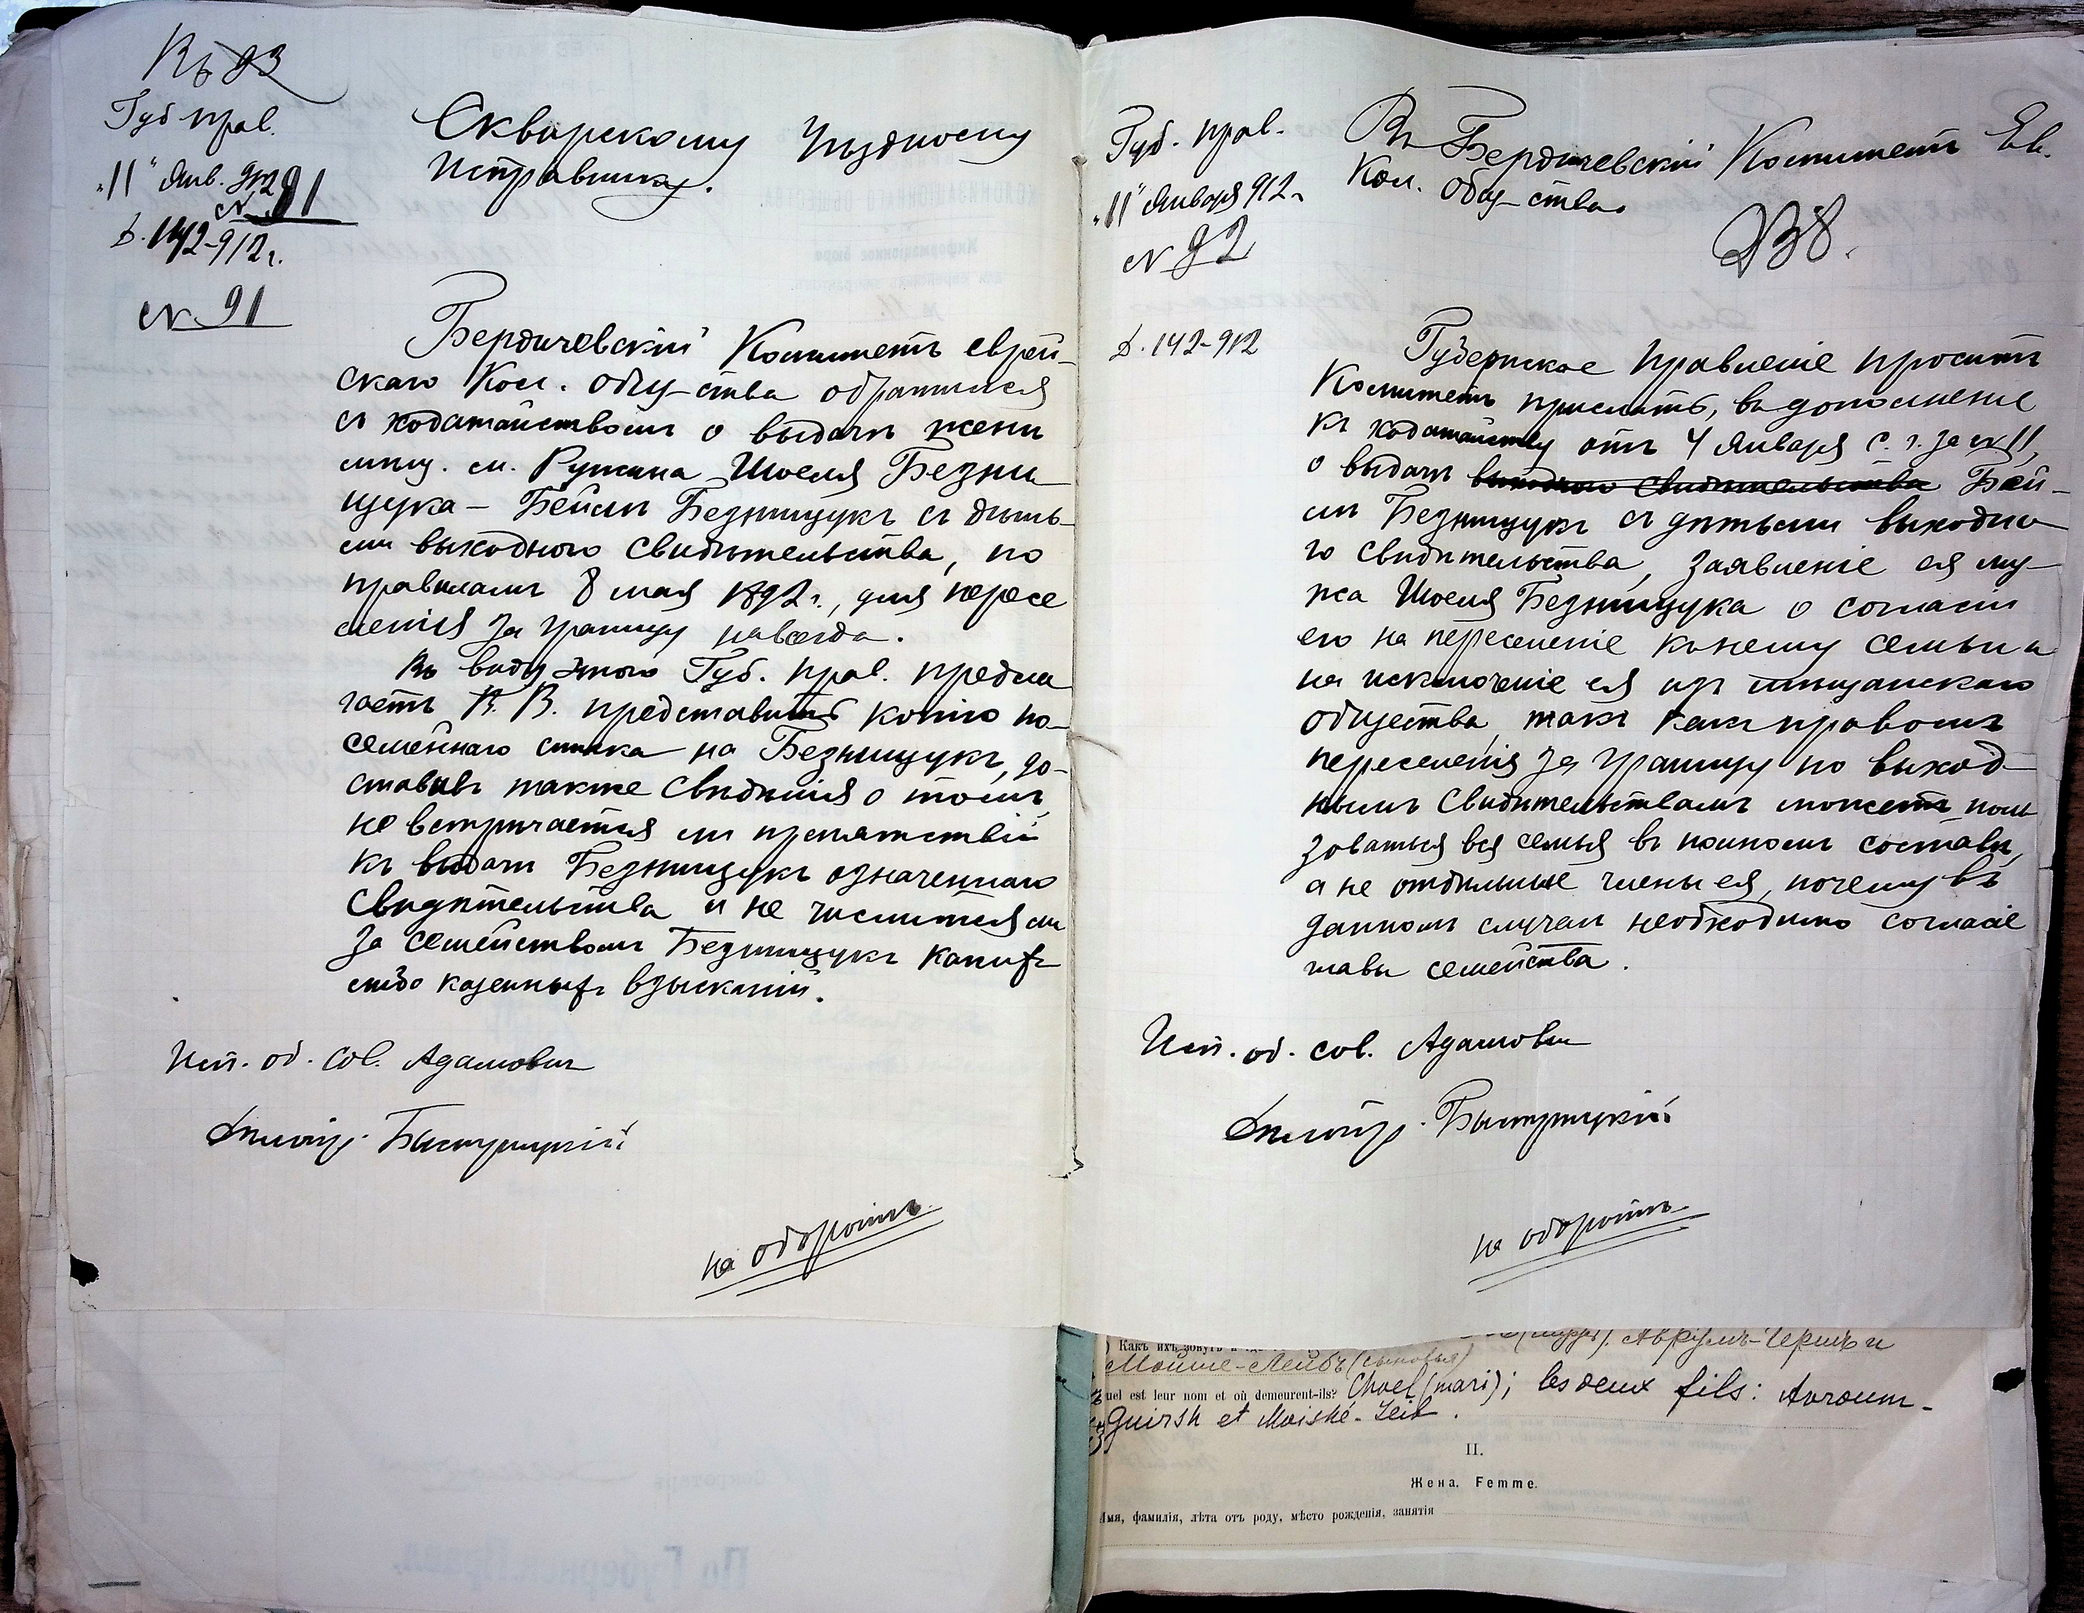 Къ 93
Губ прав.
"11" Янв. 912
№ 91
Д. 142-912 г.
№ 91
Сквирскому Уѣздному
Исправнику.
Бердичевскій Комитетъ еврей-
скаго Кол. общ-ства обратился
съ ходатайствомъ о выдачѣ женѣ
мѣщ. м. Ружина Шоеля Безни-
щука – Бейлѣ Безнищукъ съ дѣть-
ми выходного свидѣтельства, по
правиламъ 8 мая 1892 г., для пересе
ленія за границу навсегда.
Въ виду этого Губ. прав. предла
гаетъ В. В. представить копію по-
семейнаго списка на Безнищукъ, до-
ставивъ также свѣдѣнія о томъ
не встрѣчается ли препятствій
къ выдачѣ Безнищукъ означеннаго
свидѣтельства и не числится ли
за семействомъ Безнищукъ какихъ
либо казенныхъ взысканій.
Исп. об. сов. Адамович
Дѣлопр. Быстрицкій
на оборотѣ
Губ. прав.
"11" Января 912 г.
№ 92
Д. 142-912
Въ Бердичевскій Комитетъ Ев.
Кол. общ-ства
Губернское Правленіе проситъ
Комитетъ прислать, въ дополненіе
къ ходатайству отъ 4 Января с. г. за № 11,
о выдачѣ выходного свидѣтельства Бей-
лѣ Безнищукъ съ дѣтьми выходно
го свидѣтельства, заявленіе ея му-
жа Шоеля Безнищука о согласіи
его на переселеніе къ нему семьи и
на исключеніе ея изъ мѣщанскаго
общества, такъ какъ правомъ
переселенія за границу по выход-
нымъ свидѣтельствамъ можетъ поль
зоваться вся семья въ полномъ составѣ,
а не отдѣльные члены ея, почему въ
данномъ случаѣ необходимо согласіе
главы семейства.
Исп. об. сов. Адамович
Дѣлопр. Быстрицкій
на оборотѣ
) Какъ ихъ зовутъ и (мужъ). Аврумъ-Гершъ и
Мойше-Лейбъ (сыновья)
uel est leur nom et où demeurent-ils? Choel (mari); les deux fils: Avroum-
Guirsh et Moishé-Leib.
II.
Жена. Femme.
Имя, фамилія, лѣта отъ роду, мѣсто рожденія, занятія